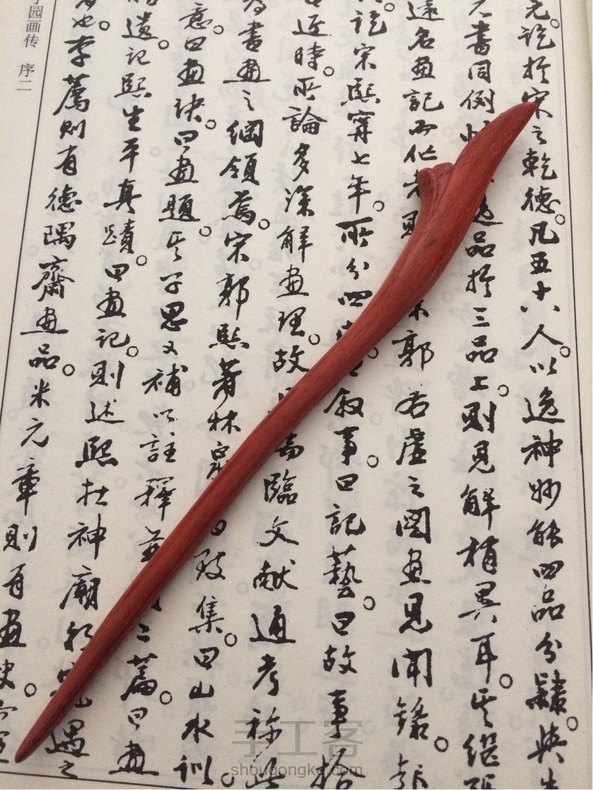 元。訖於宋之乾德。凡五十八人。以逸神妙能四品分隸。與
之書同例。逸品於三品上。則見解稍異耳。其繼張
遠名畫記而作者則郭若虛之圖畫見聞錄。
訖宋熙寧七年。所分四叙事。曰記藝。曰故事拾
近時。所論多深解畫理。故馬臨文獻通考称此
為書畫之綱領焉。宋郭熙著林泉致集。曰山水訓。
意。曰畫訣。曰畫題。其子思又補以註釋二篇。曰畫
遺。記熙生平真蹟。曰畫記。則述熙於神廟遇之
也。李薦則有德隅齋畫品。米元章則有畫
园画传 序二
手工客
shougongke.com